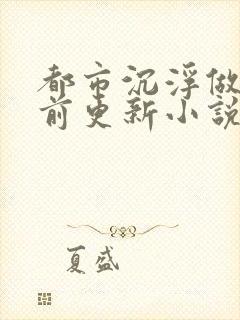 都市沉浮做
前更新小説
夏盛